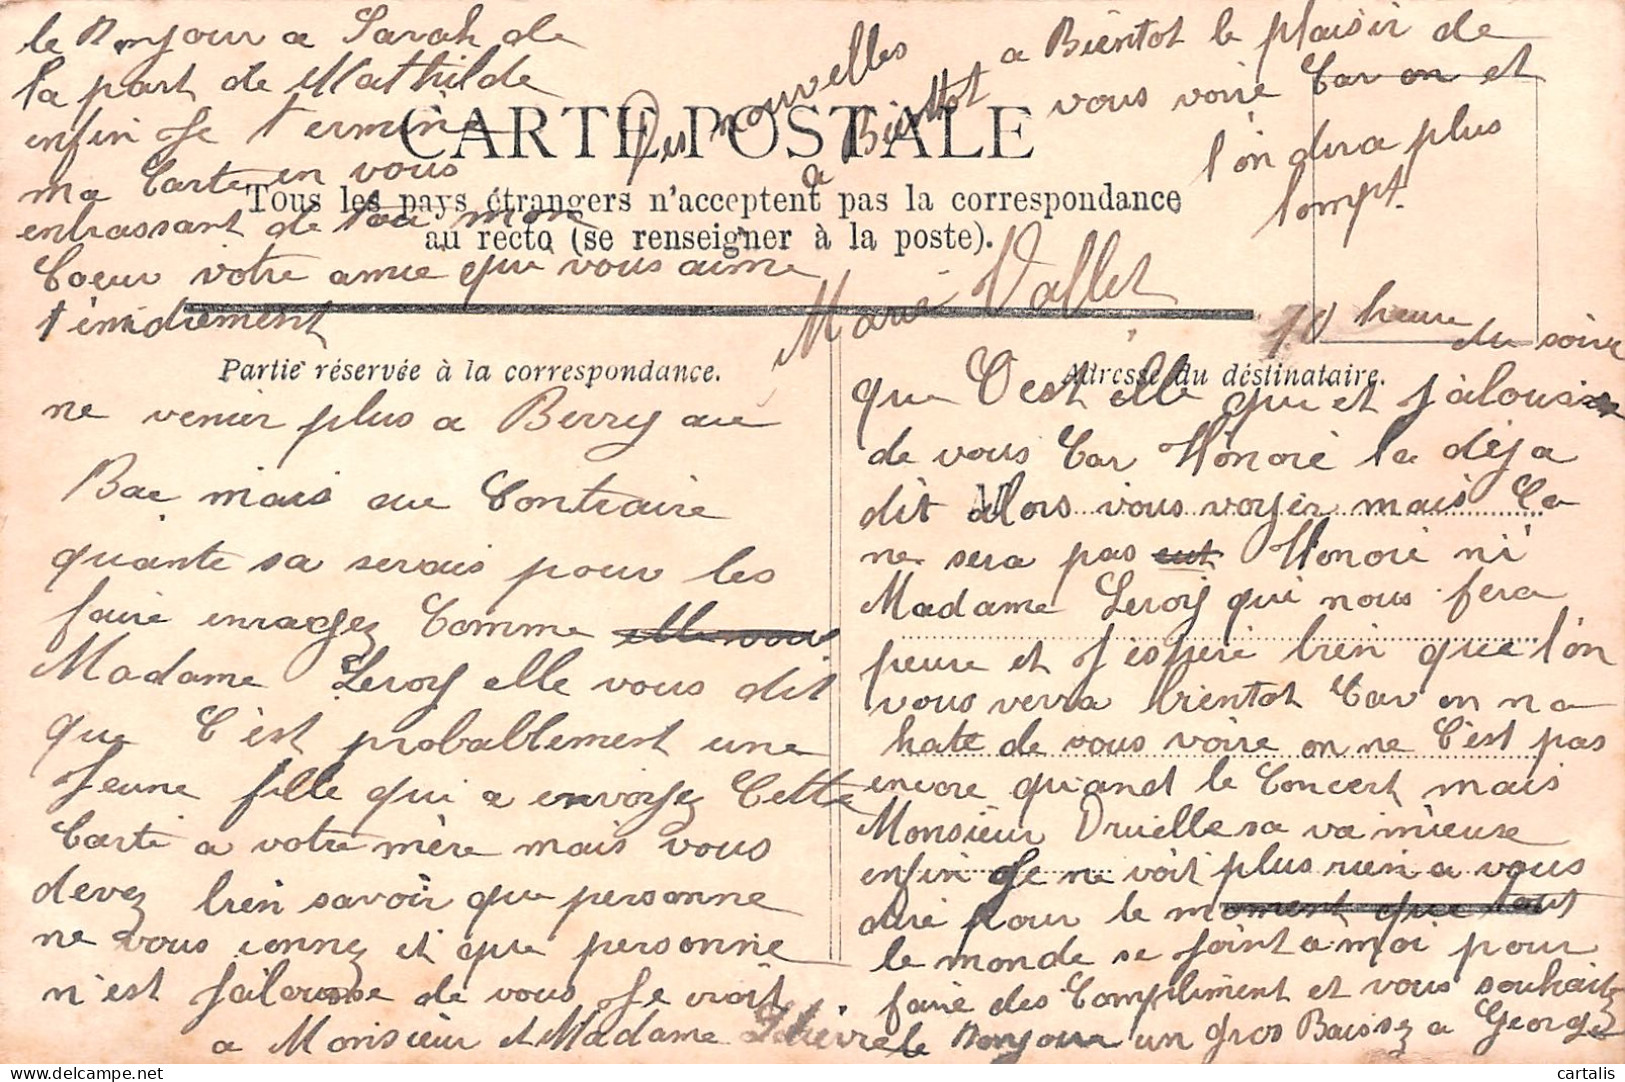 CARTE POSTALE
Tous les pays étrangers n'acceptent pas la correspondance
au recto (se renseigner à la poste).
Partie réservée à la correspondance.
Adresse du destinataire.
ne venir plus a Berry au
Bac mais au Contraire
quante sa serais pour les
faire enragez Comme elle vous
Madame Leroy elle vous dit
que C'est probablement une
jeune fille qui a envoyez Cette
Carte a votre mère mais vous
devez bien savoir que personne
ne vous connez et que personne
n'est jalousse de vous je croit
que C'est elle qui et jalouse
de vous Car Honoré la déja
dit Alors vous voyer mais Ca
ne sera pas Honoré ni
Madame Leroy qui nous fera
peure et j'esperè bien que l'on
vous verra bientot Car on na
hate de vous voire on ne C'est pas
encore quand le Concert mais
Monsieur Druelle sa va mieuse
enfin je ne voit plus rien a vous
dire pour le moment que tout
le monde se joint a moi pour
faire des Compliment et vous souhaitez
le Bonjour un gros Baissez a George
a Monsieur et Madame
le Bonjour a Sarah de
la part de Mathilde
enfin je terminè
ma Carte en vous
enbrassant de tou mon
Coeur votre amie qui vous aime
tendrement
Marie Vallet
Des nouvelles
a Bientot
a Bientot le plaisir de
vous voire Car on et
l'on dira plus
lompt.
10 heure du soire
cartalis
delcampe.net